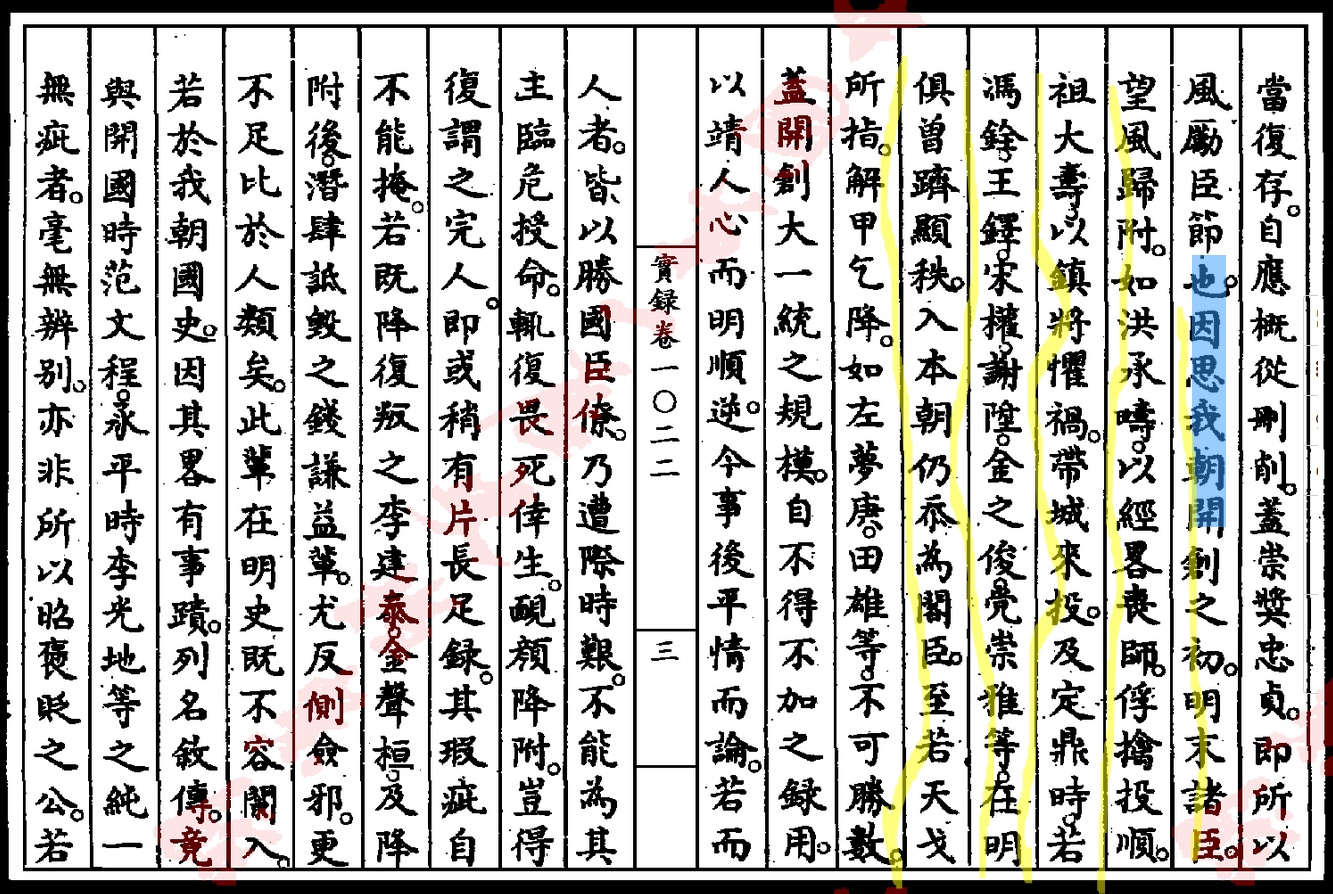 當復存。自應概從刪削。蓋崇獎忠貞。即所以
風勵臣節也。因思我朝開創之初。明末諸臣。
望風歸附。如洪承疇。以經畧喪師。俘擒投順。
祖大壽。以鎮將懼禍。帶城來投。及定鼎時。若
馮銓。王鐸。宋權。謝陞。金之俊。党崇雅等。在明
俱曾躋顯秩。入本朝仍忝為閣臣。至若天戈
所指。解甲乞降。如左夢庚。田雄等。不可勝數。
蓋開創大一統之規模。自不得不加之錄用。
以靖人心而明順逆。今事後平情而論。若而
實録卷一〇二二
三
人者。皆以勝國臣僚。乃遭際時艱。不能為其
主臨危授命。輒復畏死倖生。靦顏降附。豈得
復謂之完人。即或稍有片長足録。其瑕疵自
不能掩。若既降復叛之李建泰。金聲桓。及降
附後。潛肆詆毀之錢謙益輩。尤反側僉邪。更
不足比於人類矣。此輩在明史既不容闌入。
若於我朝國史。因其畧有事蹟。列名敘傳。竟
與開國時范文程。承平時李光地等之純一
無疵者。毫無辨别。亦非所以昭褒貶之公。若